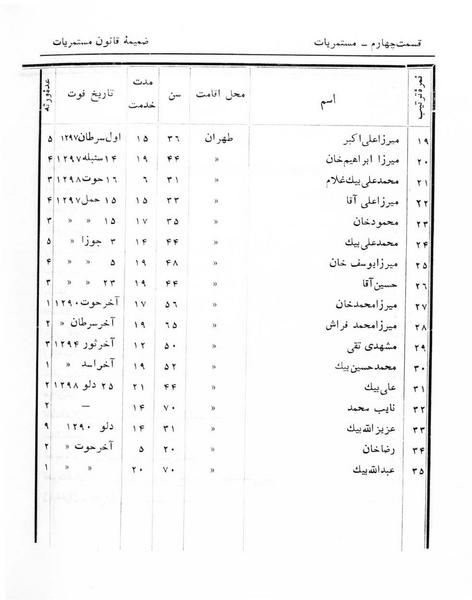 قسمت چهارم – مستمریات ضمیمهٔ قانون مستمریات
نمره ترتیب اسم محل اقامت سن مدت خدمت تاریخ فوت عده ورثه
۱۹ میرزا علی اکبر طهران ۳۶ ۱۵ اول سرطان ۱۲۹۷ ۵
۲۰ میرزا ابراهیم خان » ۴۴ ۱۹ ۱۴ سنبله ۱۲۹۷ ۴
۲۱ محمد علی بیك غلام » ۳۱ ۶ ۱۶ حوت ۱۲۹۸ ۳
۲۲ میرزا علی آقا » ۳۳ ۱۵ ۱۵ حمل ۱۲۹۷ ۴
۲۳ محمود خان » ۳۵ ۱۷ ۱۵ » » ۳
۲۴ محمد علی بیك » ۴۴ ۱۴ ۳ جوزا » ۵
۲۵ میرزا یوسف خان » ۴۸ ۱۹ ۵ » » ۴
۲۶ حسین آقا » ۴۴ ۱۹ ۲۳ » » ۳
۲۷ میرزا محمد خان » ۵۶ ۱۷ آخر حوت ۱۲۹۰ ۱
۲۸ میرزا محمد فراش » ۶۵ ۱۹ آخر سرطان » ۲
۲۹ مشهدی تقی » ۵۰ ۱۲ آخر ثور ۱۲۹۴ ۳
۳۰ محمد حسین بیك » ۵۲ ۱۹ آخر اسد » ۱
۳۱ علی بیك » ۴۴ ۲۱ ۲۵ دلو ۱۲۹۸ ۲
۳۲ نایب محمد » ۷۰ ۱۴ — ۲
۳۳ عزیز الله بیك » ۳۱ ۱۴ دلو ۱۲۹۰ ۹
۳۴ رضا خان » ۲۰ ۵ آخر حوت » ۲
۳۵ عبدالله بیك » ۷۰ ۲۰ » » ۱